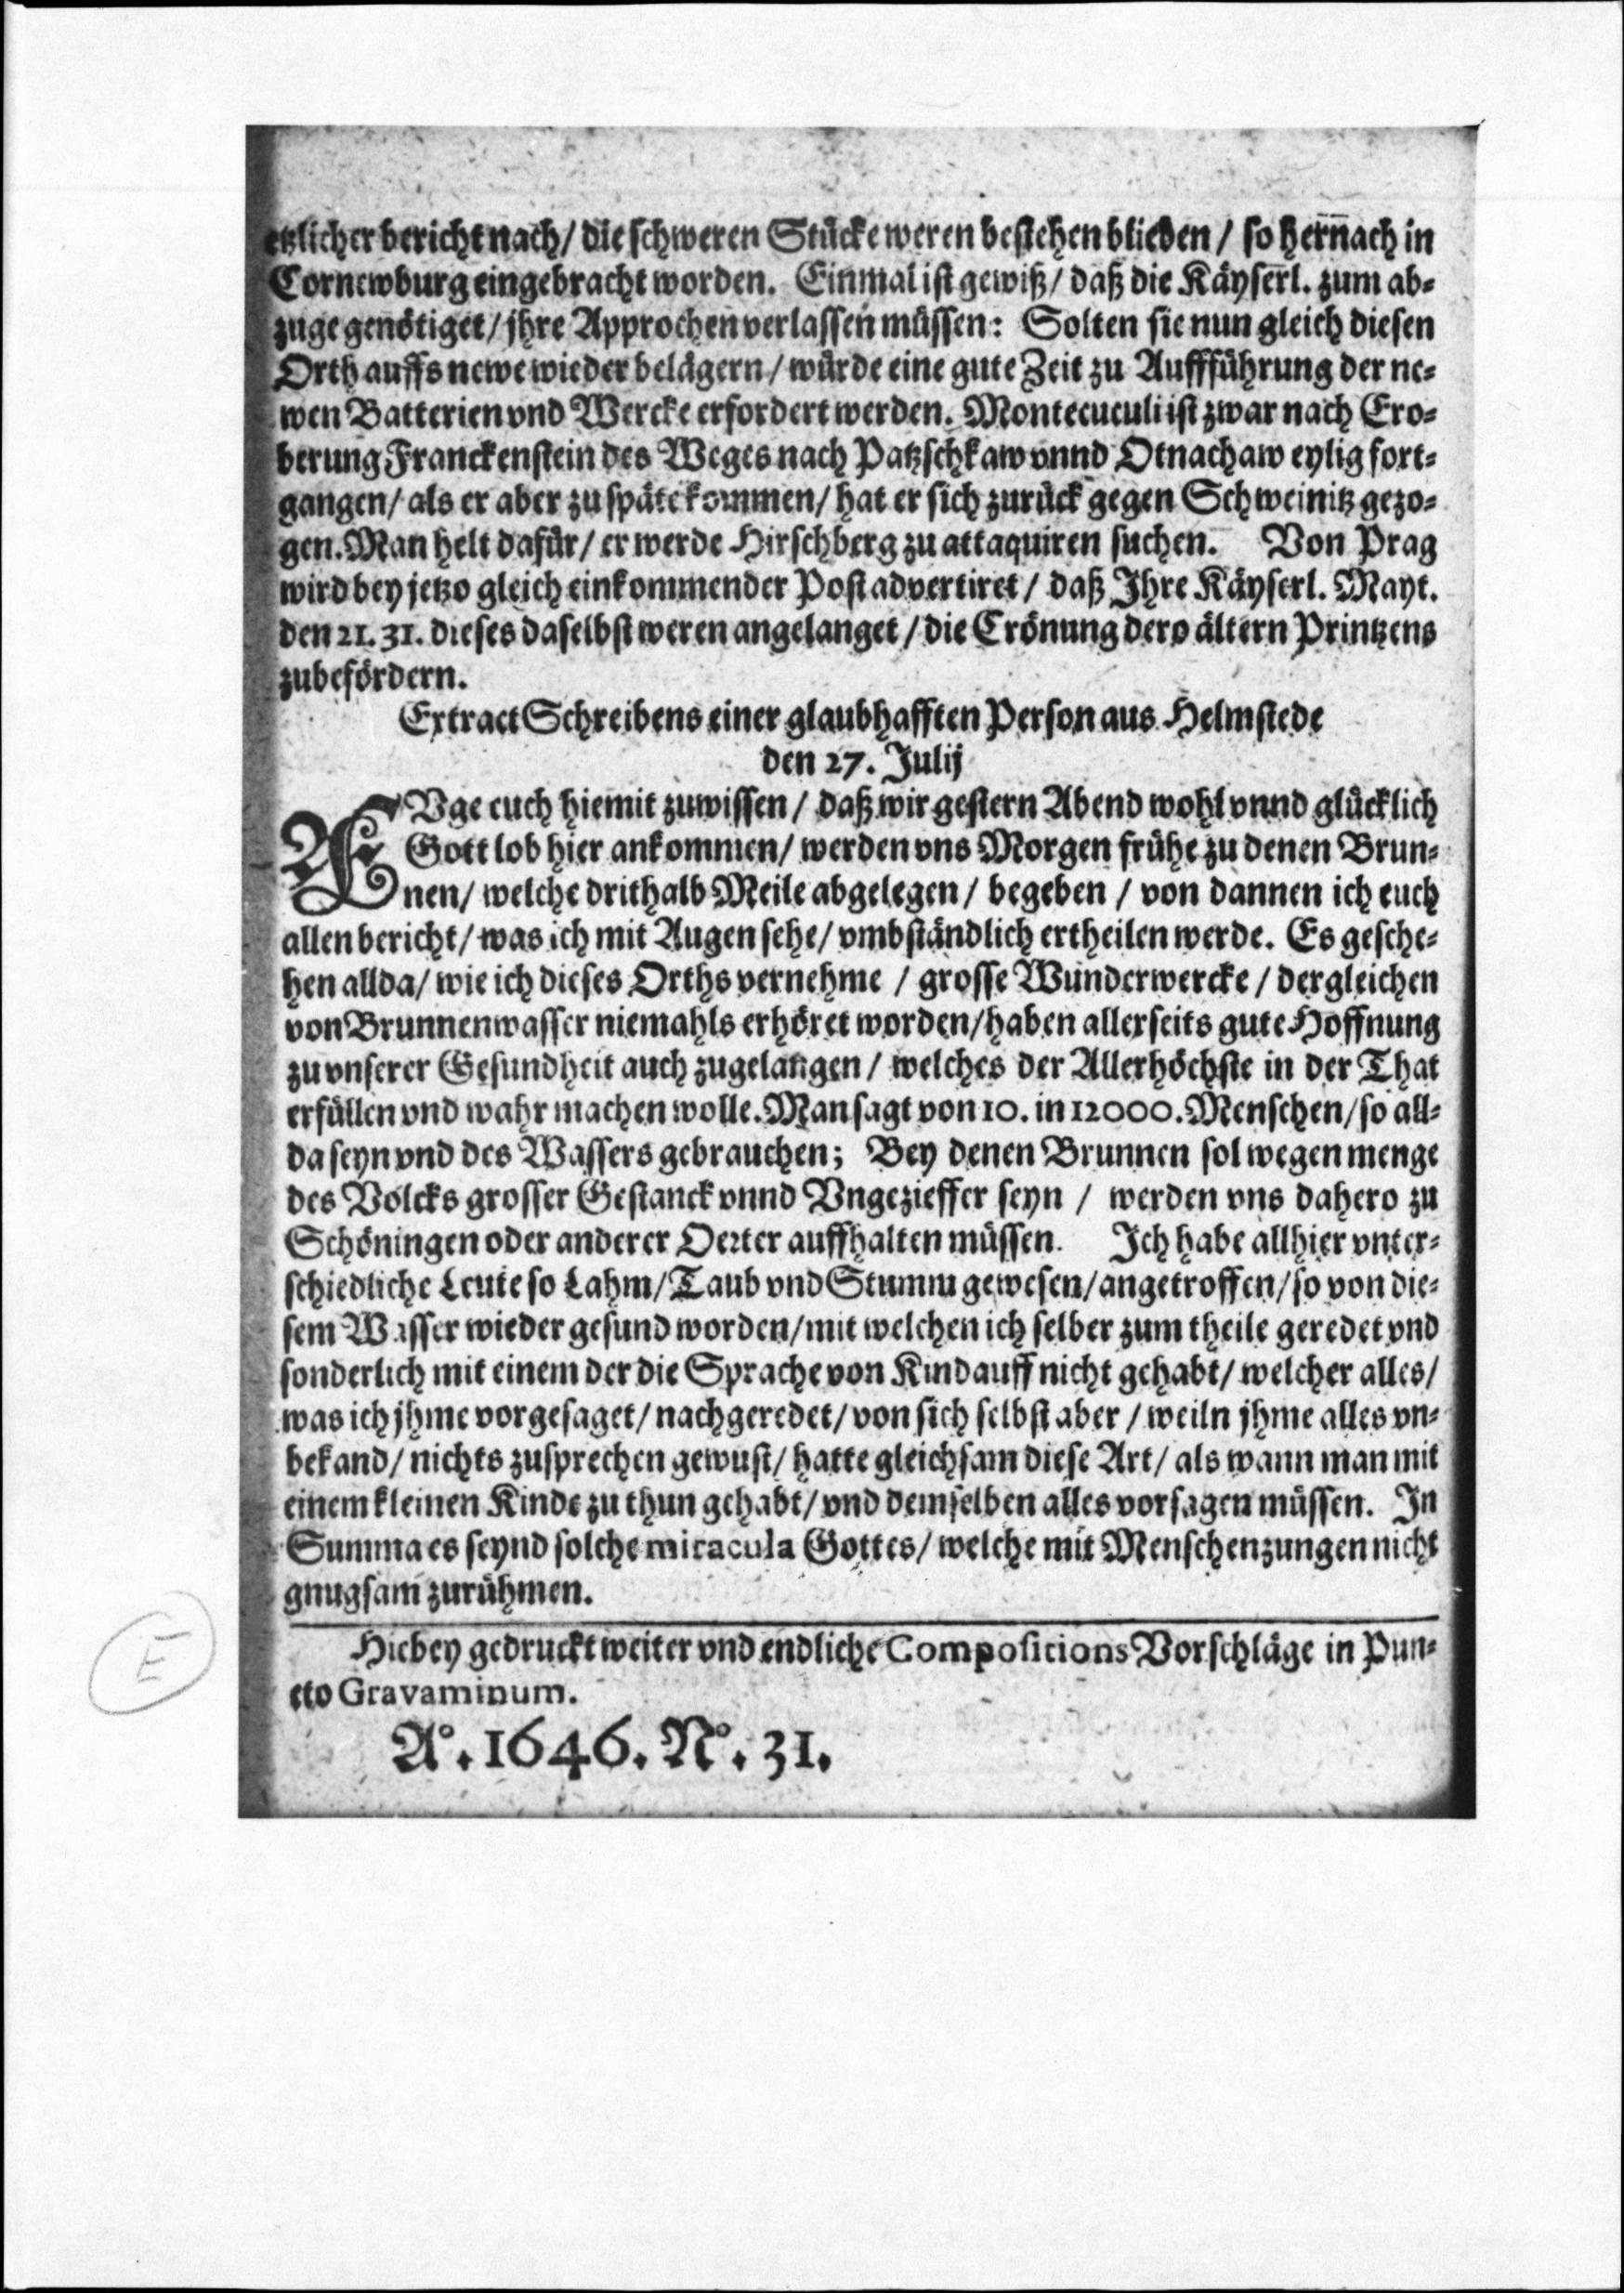 etzlicher bericht nach/ die schweren Stücke weren bestehen blieben / so hern̄ach in
Cornewburg eingebracht worden. Einmal ist gewiß/ daß die Käyserl. zum ab-
zuge genötiget/ jhre Approchen verlassen müssen: Solten sie nun gleich diesen
Orth auffs newe wieder belägern/ würde eine gute Zeit zu Auffführung der ne-
wen Batterien vnd Wercke erfordert werden. Montecuculi ist zwar nach Ero-
berung Franckenstein des Weges nach Patzschkaw vnnd Otnachaw eylig fort-
gangen/ als er aber zu späte kommen/ hat er sich zurück gegen Schweinitz gezo-
gen. Man helt dafür/ er werde Hirschberg zu attaquiren suchen. Von Prag
wird bey jetzo gleich einkommender Post advertiret/ daß Ihre Käyserl. Mayt.
den 21. 31. dieses daselbst weren angelanget/ die Crönung dero ältern Printzens
zubefördern.
Extract Schreibens einer glaubhafften Person aus Helmstede
den 27. Julij
FVge euch hiemit zuwissen/ daß wir gestern Abend wohl vnnd glücklich
Gott lob hier ankommen/ werden vns Morgen frühe zu denen Brun-
nen/ welche drithalb Meile abgelegen/ begeben / von dannen ich euch
allen bericht/ was ich mit Augen sehe/ vmbständlich ertheilen werde. Es gesche-
hen allda/ wie ich dieses Orths vernehme / grosse Wunderwercke/ dergleichen
von Brunnenwasser niemahls erhöret worden/ haben allerseits gute Hoffnung
zu vnserer Gesundheit auch zugelangen/ welches der Allerhöchste in der That
erfüllen vnd wahr machen wolle. Man sagt von 10. in 12000. Menschen/ so all-
da seyn vnd des Wassers gebrauchen; Bey denen Brunnen sol wegen menge
des Volcks grosser Gestanck vnnd Vngezieffer seyn / werden vns dahero zu
Schöningen oder anderer Oerter auffhalten müssen. Ich habe allhier vnter-
schiedliche Leute so Lahm/ Taub vnd Stumm gewesen/ angetroffen/ so von die-
sem Wasser wieder gesund worden/ mit welchen ich selber zum theile geredet vnd
sonderlich mit einem der die Sprache von Kind auff nicht gehabt/ welcher alles/
was ich jhme vorgesaget/ nachgeredet/ von sich selbst aber / weiln jhme alles vn-
bekand/ nichts zusprechen gewust/ hatte gleichsam diese Art/ als wann man mit
einem kleinen Kinde zu thun gehabt/ vnd demselben alles vorsagen müssen. In
Summa es seynd solche miracula Gottes/ welche mit Menschenzungen nicht
gnugsam zurühmen.
Hiebey gedruckt weiter vnd endliche Compositions Vorschläge in Pun-
cto Gravaminum.
E
A°. 1646. N°. 31.